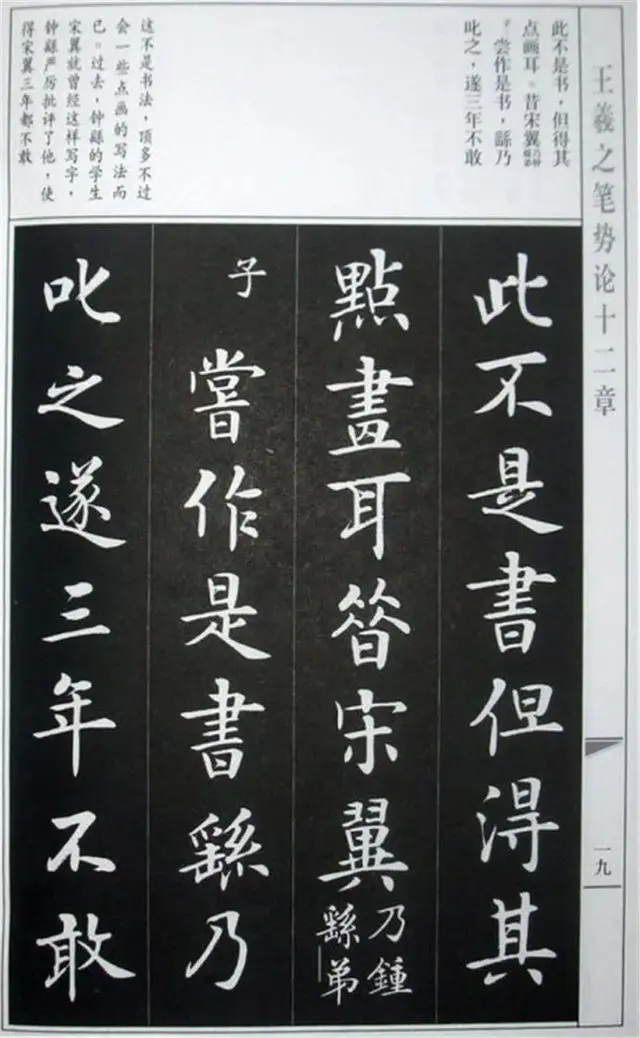 王羲之笔势论十二章
一九
此不是书，但得其
点画耳。昔宋翼乃钟繇弟
子，尝作是书，繇乃
叱之，遂三年不敢
这不是书法，顶多不过
会一些点画的写法而
已。过去，钟繇的学生
宋翼就曾经这样写字，
钟繇严厉批评了他，使
得宋翼三年都不敢
此不是書但得其
點畫耳昝宋翼乃鍾繇弟
子嘗作是書繇乃
叱之遂三年不敢